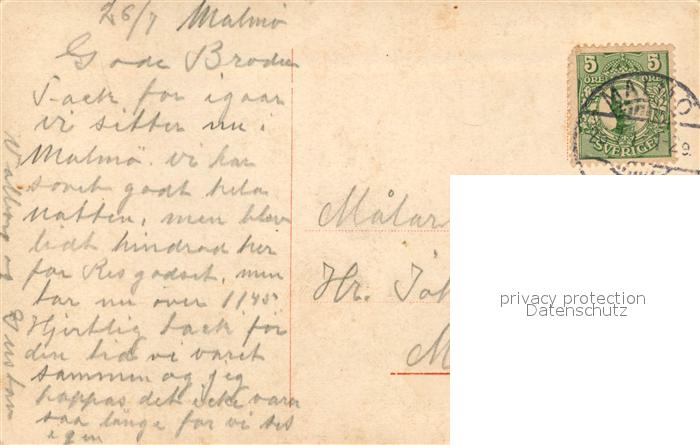 26/7 Malmö
Gode Broder
Tack for igaar
vi sitter nu i
Malmö. vi har
sovet godt hela
natten, men blev
lidt hindrad her
for Resgodset, men
tar nu över 1145
Hjertlig tack för
den tid vi varet
sammen og jeg
hoppas det icke vara
saa länge for vi ses
igen
Valborg og Gustav
5 5
ÖRE ÖRE
SVERIGE
MALMÖ
29
Målar
Hr. Joh
M
privacy protection
Datenschutz